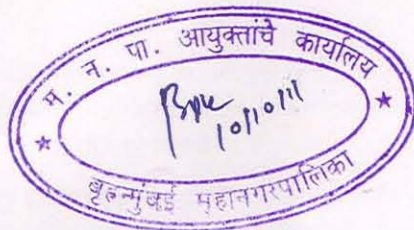 म. न. पा. आयुक्तांचे कार्यालय
10/10/11
बृहन्मुंबई महानगरपालिका